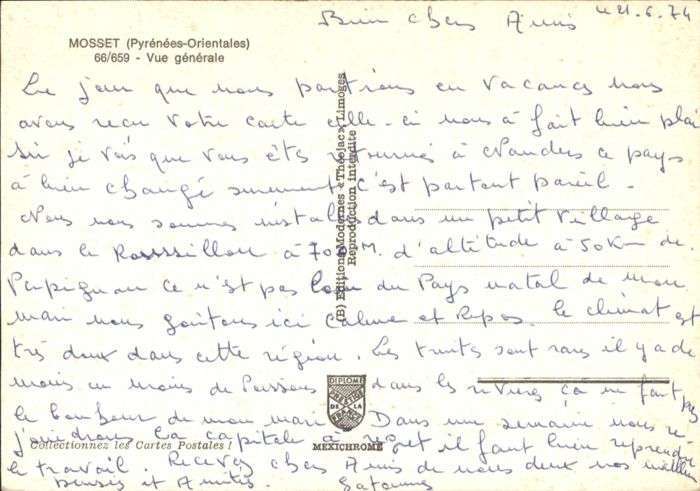 Bien chers Amis
4 21.6.74
MOSSET (Pyrénées-Orientales)
66/659 - Vue générale
Le jour que nous partions en vacances nous
avons recu votre carte celle-ci nous à fait bien plai
sir je vois que vous êtes retournés à ce pays
à bien changé surement c'est partout pareil -
Nous nous sommes installés dans un petit village
dans le Roussillon à 700 M. d'altitude à 50 Km de
Perpignan ce n'est pas loin du Pays natal de mon
mari nous goûtons ici Calme et Repos. le climat est
très doux dans cette région. Les truites sont rares il y a de
moins en moins de Poissons dans les rivières ça ne fait pas
le bonheur de mon mari. Dans une semaine nous re
joindrons la capitale à regret il faut bien reprendre
le travail. Recevez chers Amis de nous deux nos meilleures
pensées et Amitiés.
(B) Editions Modernes « Théojac » Limoges
Reproduction interdite
DIPLOME
PRESTIGE
DE LA
FRANCE
MEXICHROME
Collectionnez les Cartes Postales !